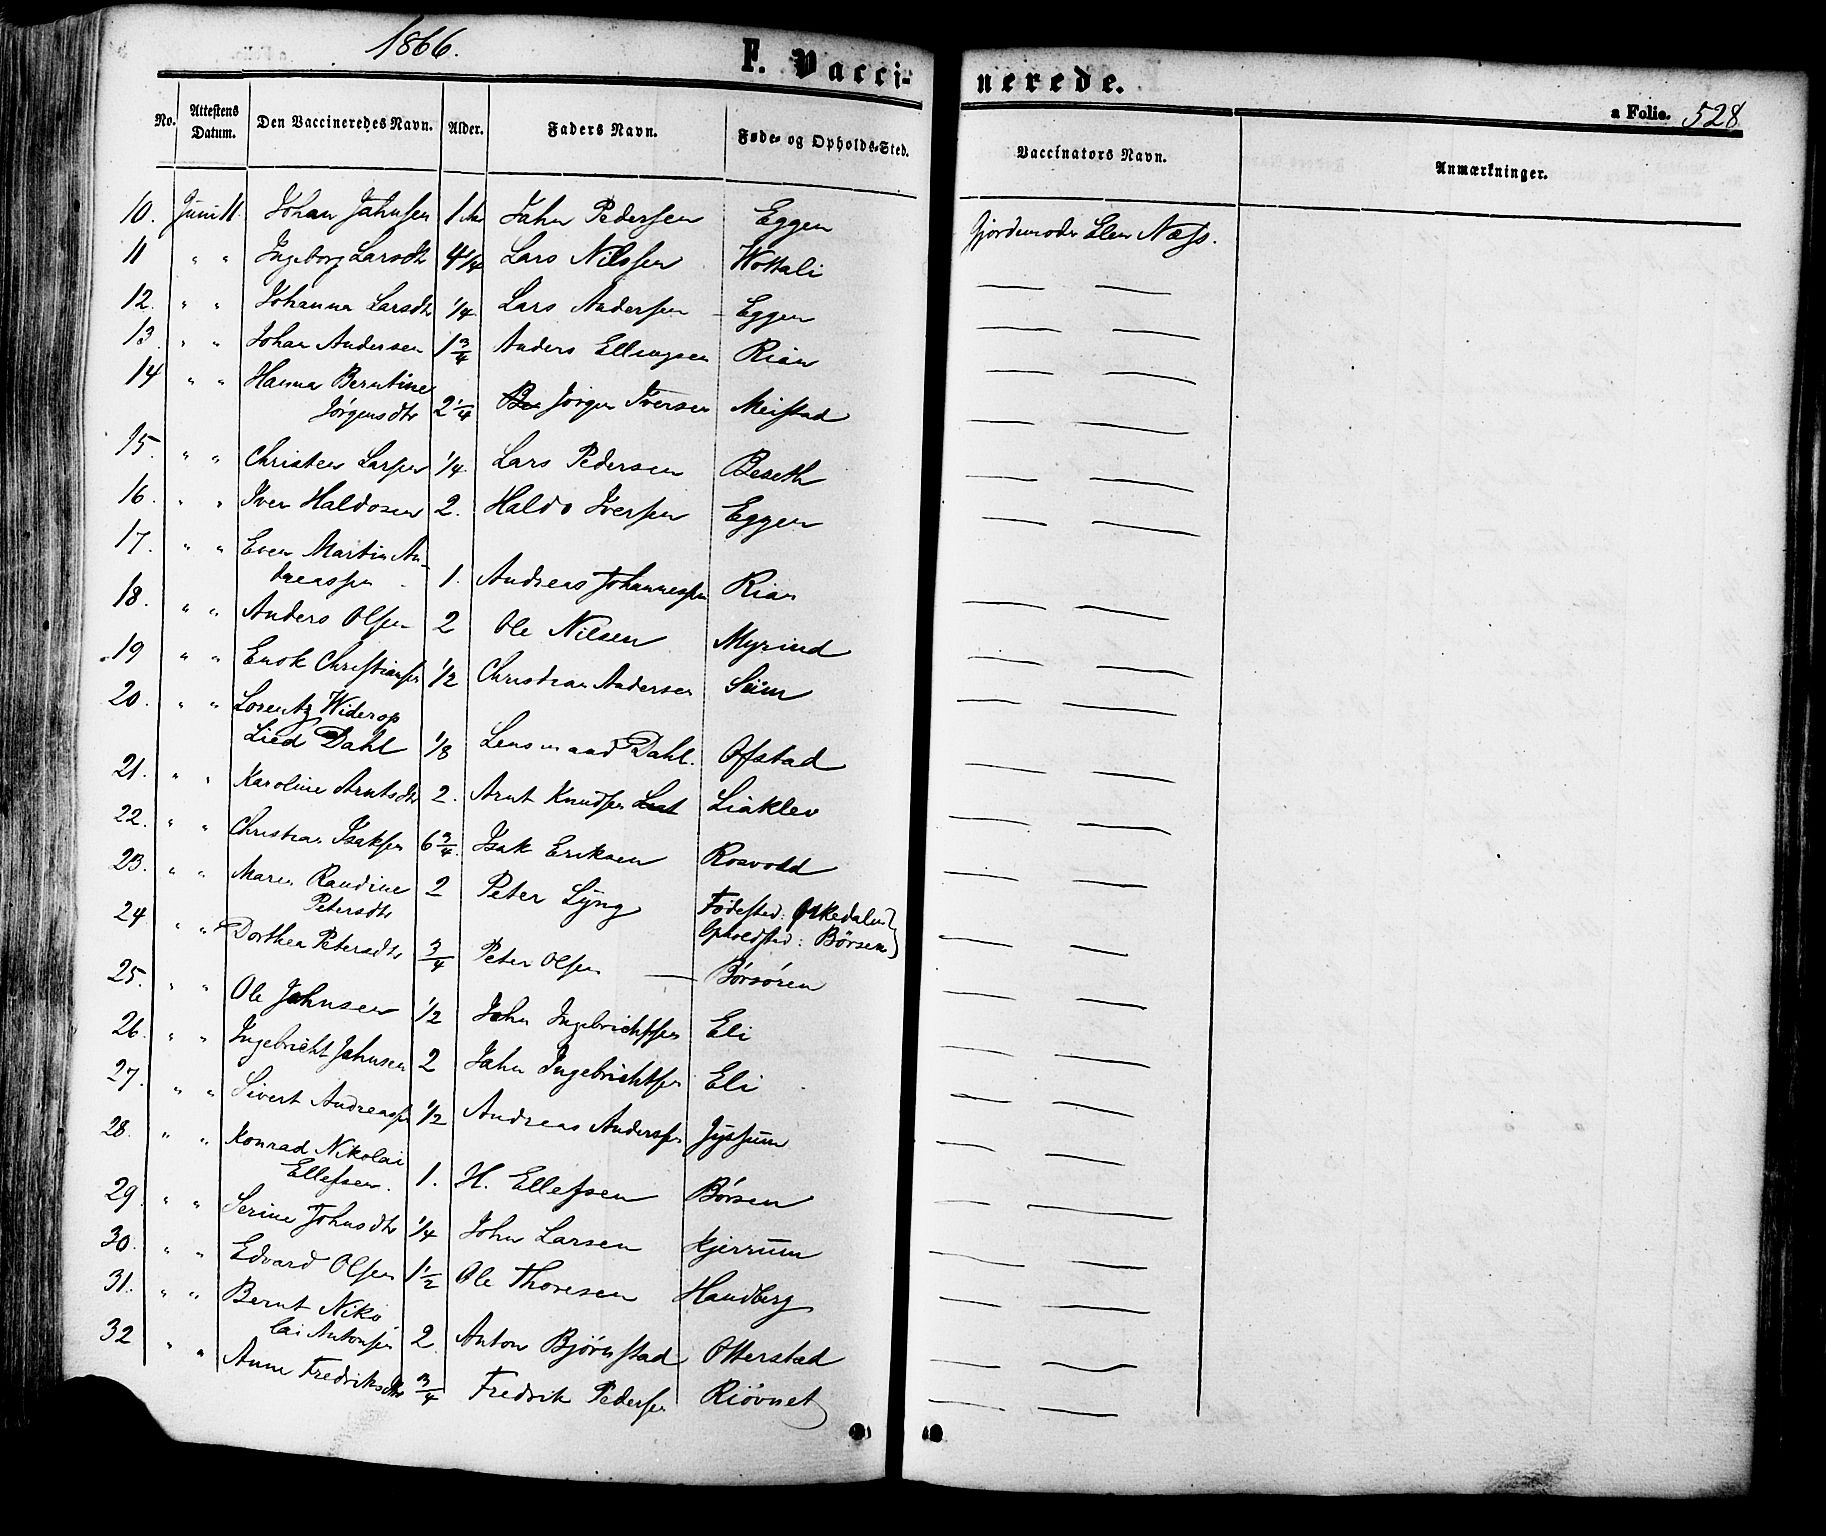 1866.
F. Vacci-
nerede.
a Folio. 528
No. Attestens Datum. Den Vaccineredes Navn. Alder. Faders Navn. Føde- og Opholds-Sted. Vaccinators Navn. Anmærkninger.
10. Juni 11. Johan Jahnsen 1 Jahn Pedersen Eggen Gjordemoder Elen Næss.
11 " " Ingeborg Larsdtr 4 1/4 Lars Nilssen Wottali — —
12. " " Johanna Larsdtr 1/4 Lars Andersen – Eggen — —
13. " " Johan Andersen 1 3/4 Anders Ellingsen Rian — —
14 " " Hanna Berntine
Jörgensdtr 2 1/4 Jörgen Iversen Meistad — —
15. " " Christen Larsen 1/4. Lars Pedersen Beseth — —
16. " " Iver Haldosen 2. Haldo Iversen Eggen — —
17. " " Even Martin An-
dreassen 1. Andreas Johannessen Rian — —
18. " " Anders Olsen 2 Ole Nilsen Myrind — —
19 " " Enok Christiansen 1/2 Christian Andersen Siim — —
20. " " Lorentz Widerop
Lied Dahl 1/8 Lensmand Dahl. Ofstad — —
21. " " Karoline Arntsdtr 2. Arnt Knudsen Liaklev — —
22. " " Christian Isaksen 6 3/4. Isak Eriksen Rosvodd — —
23. " " Maren Randine
Petersdtr 2 Peter Lyng Födested: Orkedalen
Opholdsted: Börsen — —
24 " " Dorthea Petersdtr 3/4 Peter Olsen — Börsören — —
25. " " Ole Johnsen 1/2 John Ingebrichtsen Eli — —
26. " " Ingebricht Jahnsen 2 Jahn Ingebrichtsen Eli — —
27. " " Sivert Andreassen 1/2 Andreas Anderssen Jyssum — —
28. " " Konrad Nikolai
Ellefsen. 1. H. Ellefsen Börsen — —
29. " " Serine Johnsdtr 1/4 John Larsen Kjerrum — —
30. " " Edvard Olsen 1 1/2 Ole Thoresen Handberg — —
31. " " Bernt Niko
lai Antonsen 2. Anton Bjørnstad Otterstad — —
32 " " Anne Fredriksdtr 3/4 Fredrik Pedersen Riövnet — —